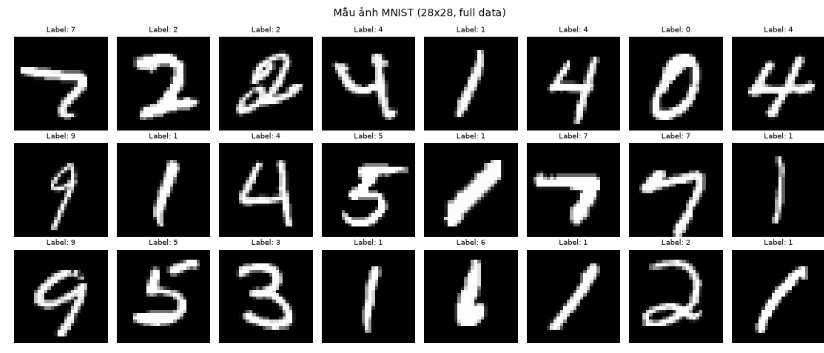 Mẫu ảnh MNIST (28x28, full data)
Label: 7 Label: 2 Label: 2 Label: 4 Label: 1 Label: 4 Label: 0 Label: 4
7 2 2 4 1 4 0 4
Label: 9 Label: 1 Label: 4 Label: 5 Label: 1 Label: 7 Label: 7 Label: 1
9 1 4 5 1 7 7 1
Label: 9 Label: 5 Label: 3 Label: 1 Label: 6 Label: 1 Label: 2 Label: 1
9 5 3 1 6 1 2 1